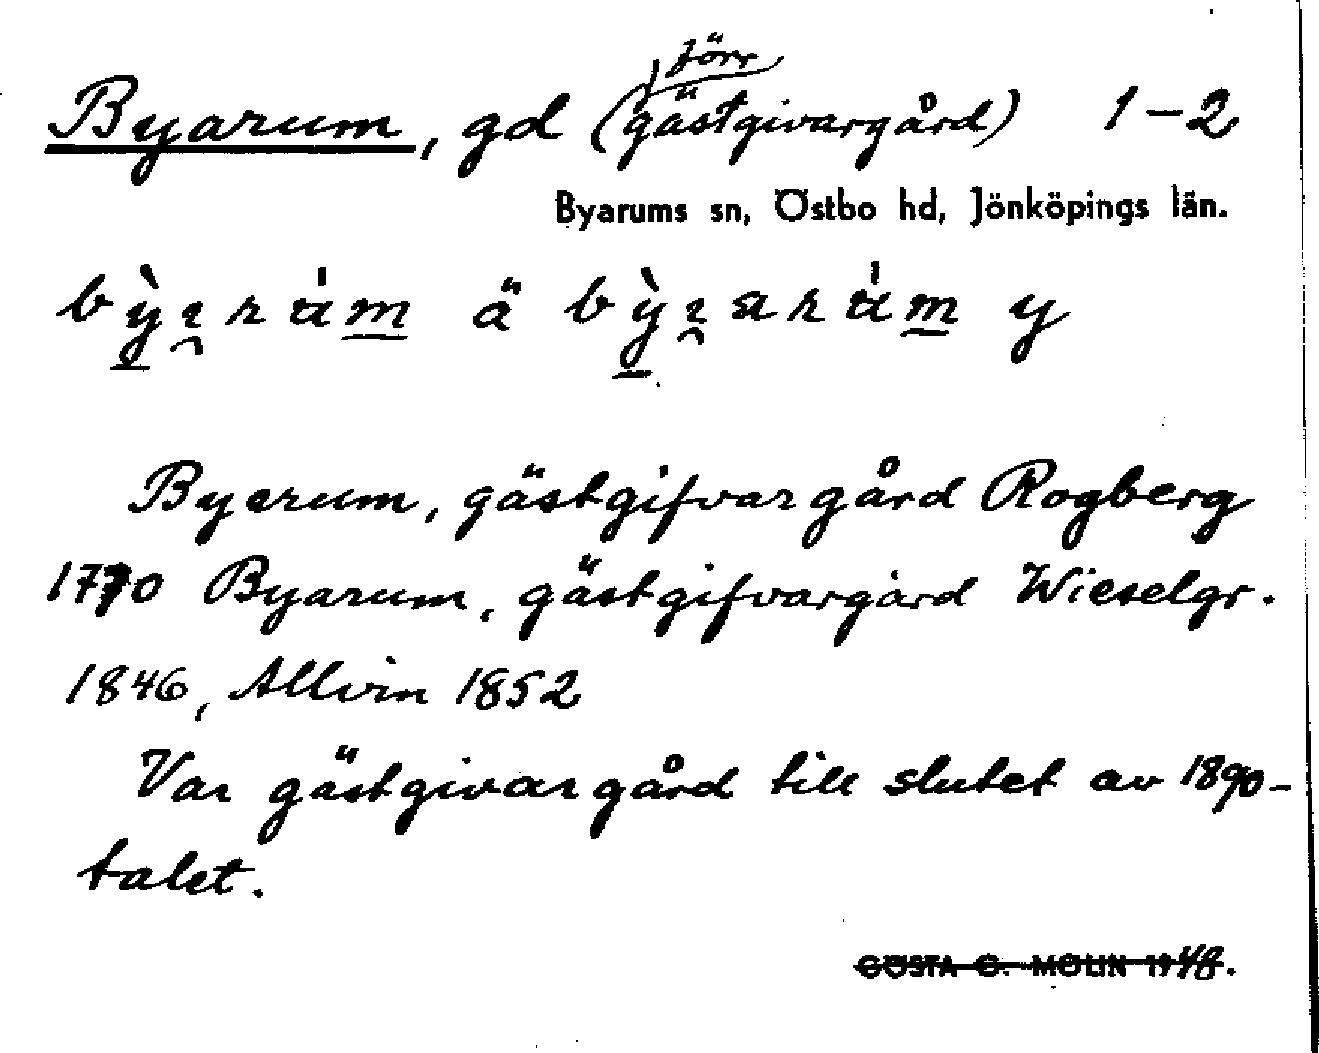 Byarum, gd (förr gästgivargård) 1-2
Byarums sn, Östbo hd, Jönköpings län.
ä y
Byarum, gästgifvargård Rogberg
1770 Byarum, gästgifvargård Wieselgr.
1846, Allvin 1852
Var gästgivargård till slutet av 1890-
talet.
GÖSTA G. MOLIN 1948.